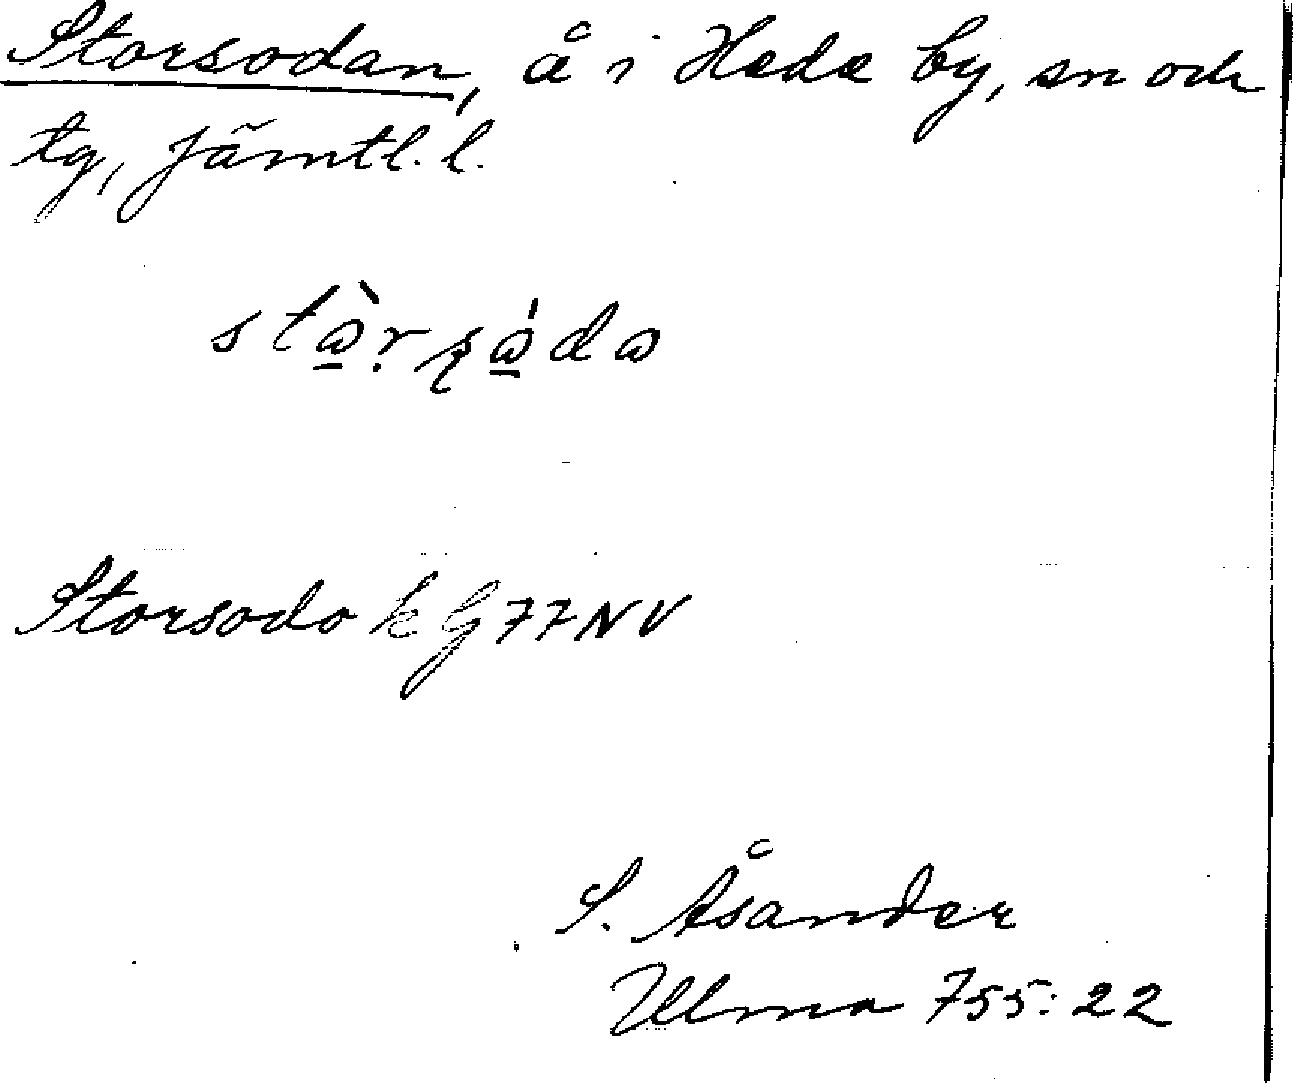 Storsodan, å i Hede by, sn och
tg, Jämtl. l.
Storsodo k G 77 NV
S. Åsander
Ulma 755:22